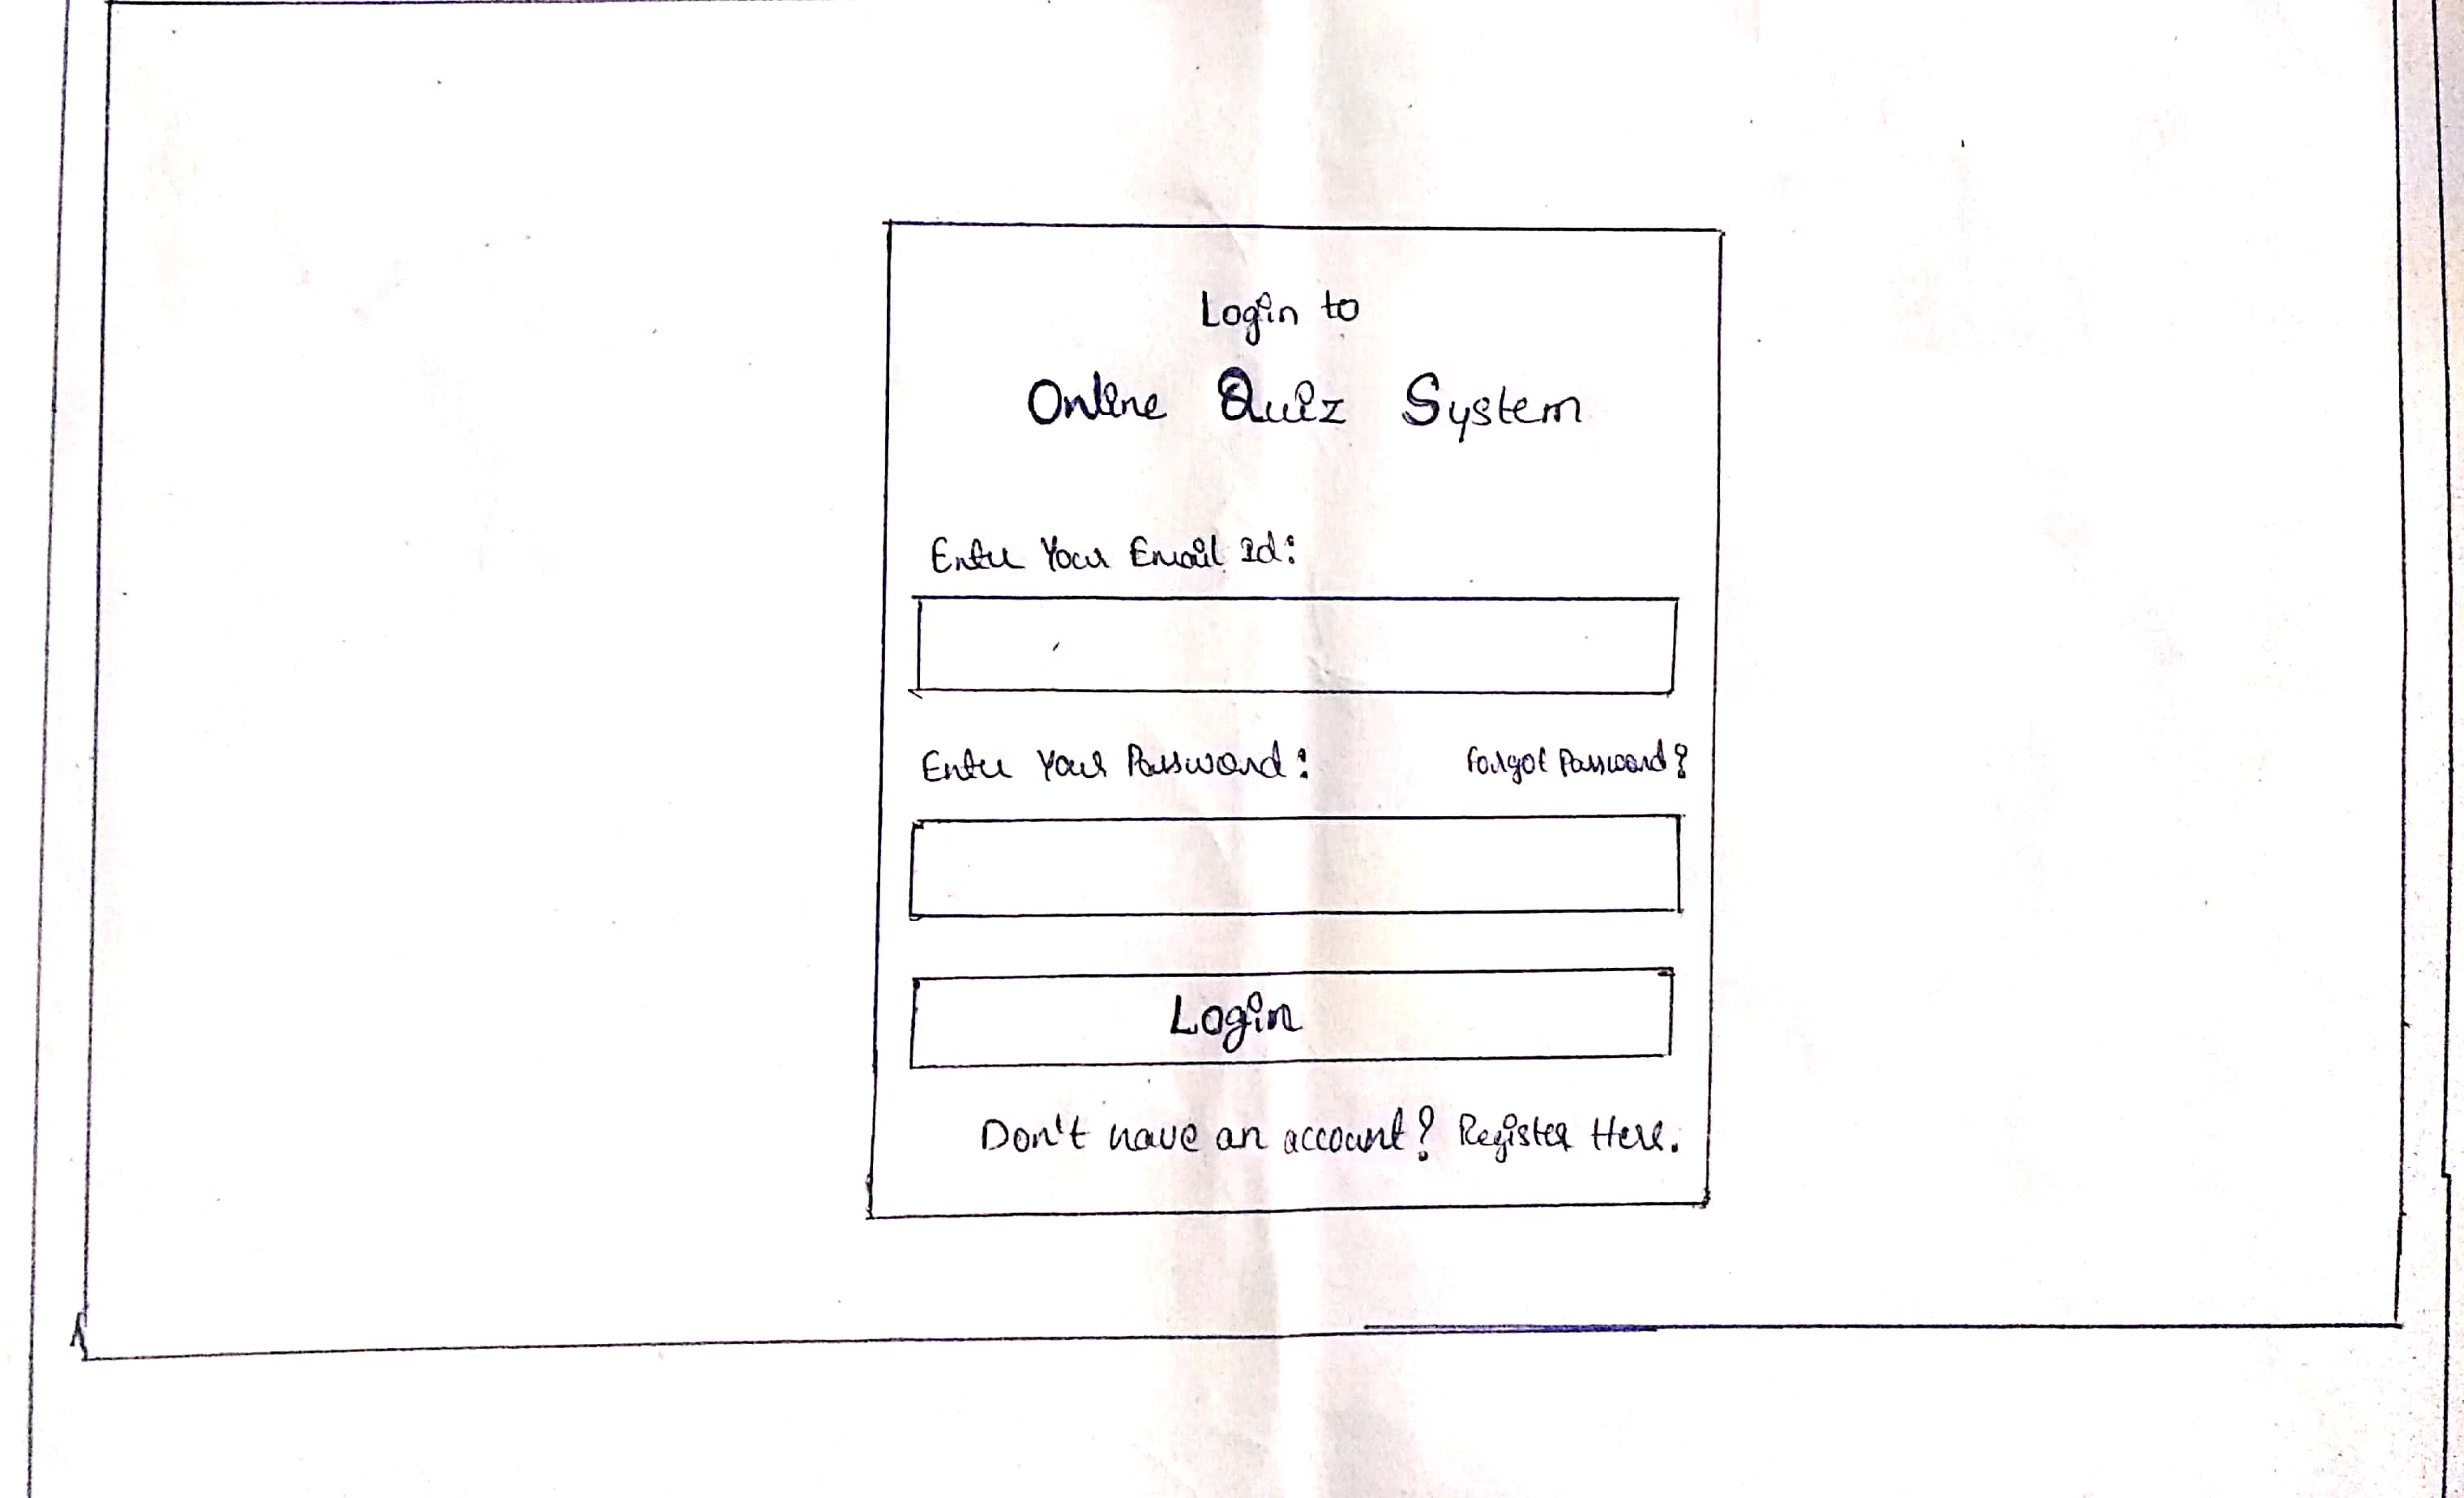 Login to
Online Quiz System
Enter Your Email Id:
Enter Your Password: Forgot Password?
Login
Don't have an account? Register Here.